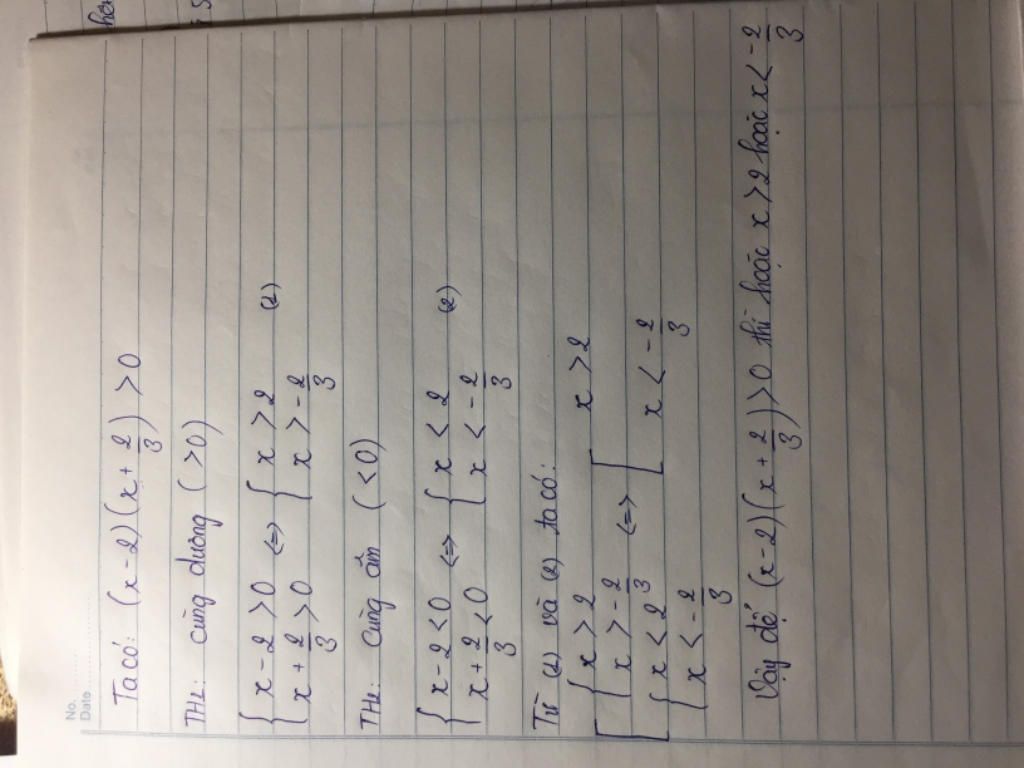 No.
Date
Ta có: (x - 2)(x + 2/3) > 0
TH1: cùng dương (> 0)
{ x - 2 > 0 <=> { x > 2
{ x + 2/3 > 0 { x > -2/3 (1)
TH2: cùng âm (< 0)
{ x - 2 < 0 <=> { x < 2
{ x + 2/3 < 0 { x < -2/3 (2)
Từ (1) và (2) ta có:
[ { x > 2 [ x > 2
[ { x > -2/3 <=> [
[ { x < 2 [ x < -2/3
[ { x < -2/3
Vậy để (x - 2)(x + 2/3) > 0 thì hoặc x > 2 hoặc x < -2/3